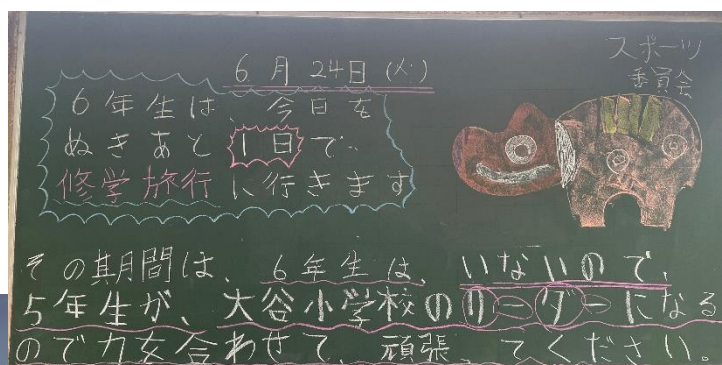 6月24日(火)
スポーツ
委員会
6年生は、今日を
ぬきあと1日で
修学旅行に行きます
その期間は、6年生は、いないので、
5年生が、大谷小学校のリーダーになる
ので力を合わせて、頑張ってください。